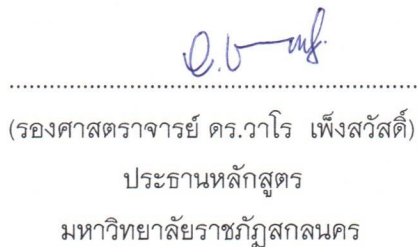 (รองศาสตราจารย์ ดร.วาโร  เพ็งสวัสดิ์)
ประธานหลักสูตร
มหาวิทยาลัยราชภัฏสกลนคร